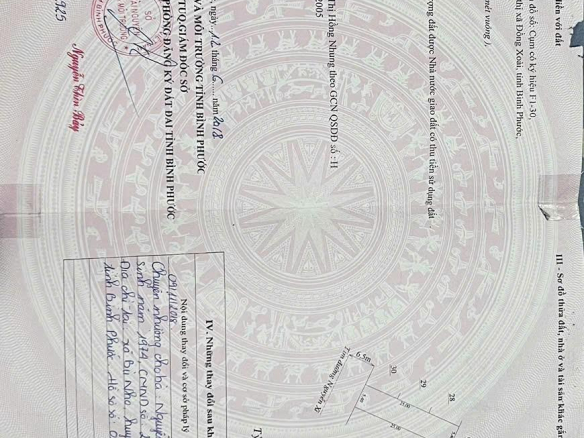 liền với đất
đồ số. Cụm có ký hiệu F1-30,
thị xã Đồng Xoài, tỉnh Bình Phước.
mét vuông ),
ượng đất được Nhà nước giao đất có thu tiền sử dụng đất
Thị Hồng Nhung theo GCN QSDĐ số : H
2005
ngày 12 tháng 6 năm 2018
VÀ MÔI TRƯỜNG TỈNH BÌNH PHƯỚC
TUQ.GIÁM ĐỐC SỞ
PHÒNG ĐĂNG KÝ ĐẤT ĐAI TỈNH BÌNH PHƯỚC
SỞ
BÌNH PHƯỚC
925
III - Sơ đồ thửa đất, nhà ở và tài sản khác gắn
28
29
30
25,00
25,00
6,5m
Tim đường Nguyễn Xí
Tỷ
IV. Những thay đổi sau kh
Nội dung thay đổi và cơ sở pháp lý
09/11/2018
Chuyển nhượng cho bà Nguyễ
sinh năm 1974 CMND số
Địa chỉ tại xã Bù Nho huy
tỉnh Bình Phước Hồ sơ số: